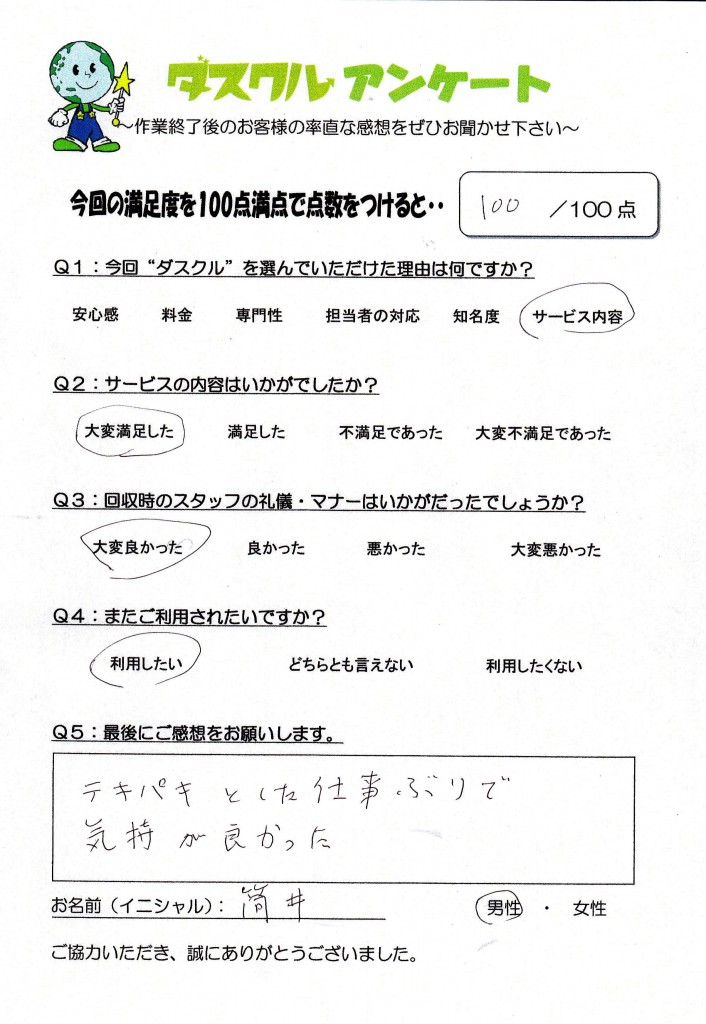 ダスクル アンケート
～作業終了後のお客様の率直な感想をぜひお聞かせ下さい～
今回の満足度を100点満点で点数をつけると‥ 100 ／100点
Q1：今回“ダスクル”を選んでいただけた理由は何ですか？
安心感 料金 専門性 担当者の対応 知名度 サービス内容
Q2：サービスの内容はいかがでしたか？
大変満足した 満足した 不満足であった 大変不満足であった
Q3：回収時のスタッフの礼儀・マナーはいかがだったでしょうか？
大変良かった 良かった 悪かった 大変悪かった
Q4：またご利用されたいですか？
利用したい どちらとも言えない 利用したくない
Q5：最後にご感想をお願いします。
テキパキとした仕事ぶりで
気持が良かった
お名前（イニシャル）： 筒井 男性 ・ 女性
ご協力いただき、誠にありがとうございました。